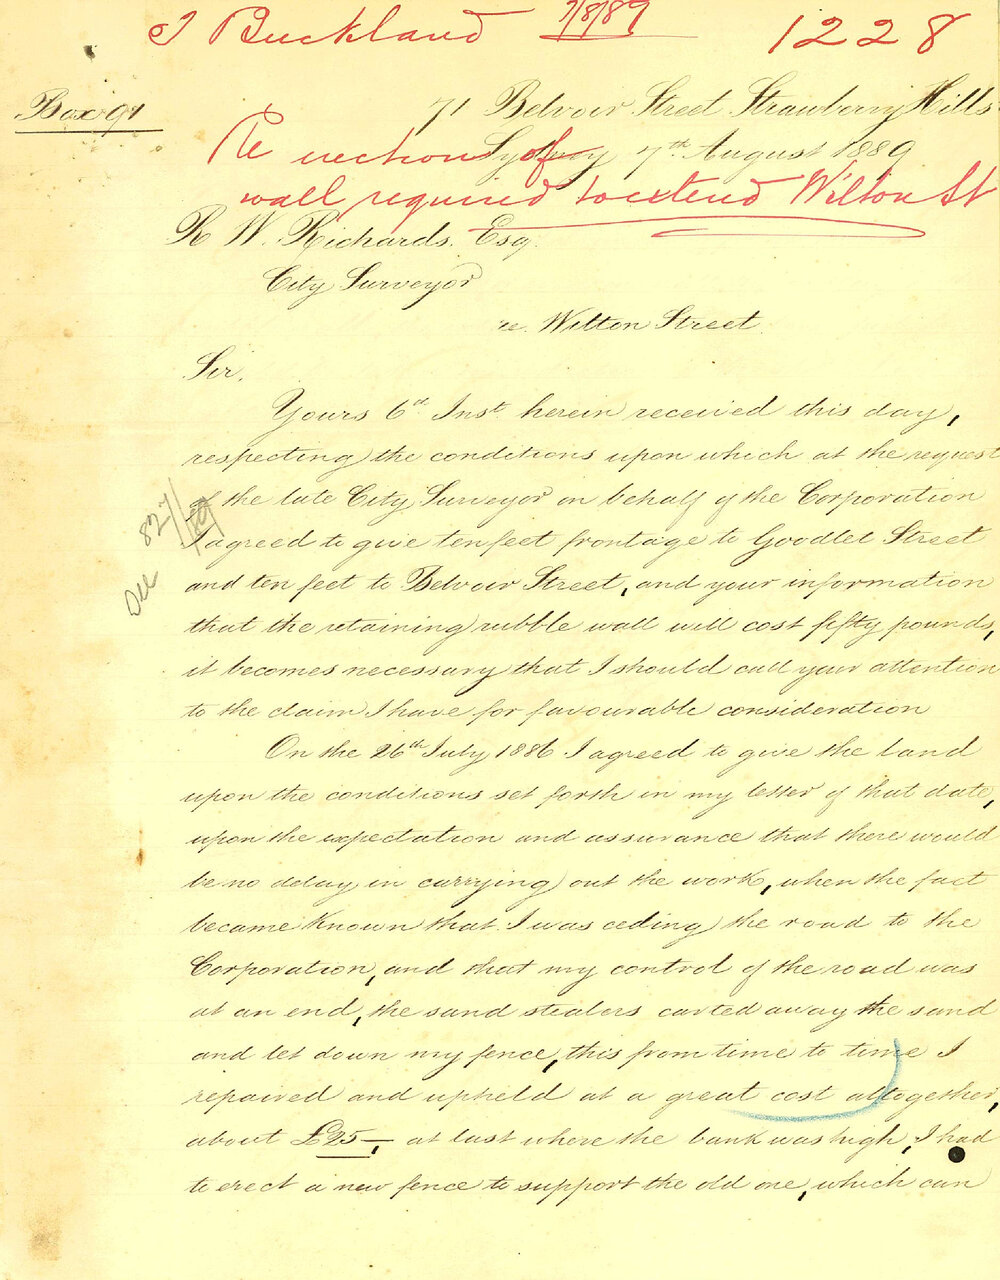 T Buckland 7/8/89 1228
Box 91
71 Belvoir Street Strawberry Hills
Sydney 7th August 1889
Re erection of
wall required to extend Wilton St
R W. Richards. Esq.
City Surveyor
re. Wilton Street.
Sir,
Yours 6th Inst. herein received this day,
respecting the conditions upon which at the request
of the late City Surveyor on behalf of the Corporation
I agreed to give ten feet frontage to Goodlet Street
and ten feet to Belvoir Street, and your information
that the retaining rubble wall will cost fifty pounds,
it becomes necessary that I should call your attention
to the claim I have for favourable consideration
On the 26th July 1886 I agreed to give the land
upon the conditions set forth in my letter of that date,
upon the expectation and assurance that there would
be no delay in carrying out the work, when the fact
became known that I was ceding the road to the
Corporation, and that my control of the road was
at an end, the sand stealers carted away the sand
and let down my fence, this from time to time I
repaired and upheld at a great cost altogether,
about £25—, at last where the bank was high, I had
to erect a new fence to support the old one, which can
827/89